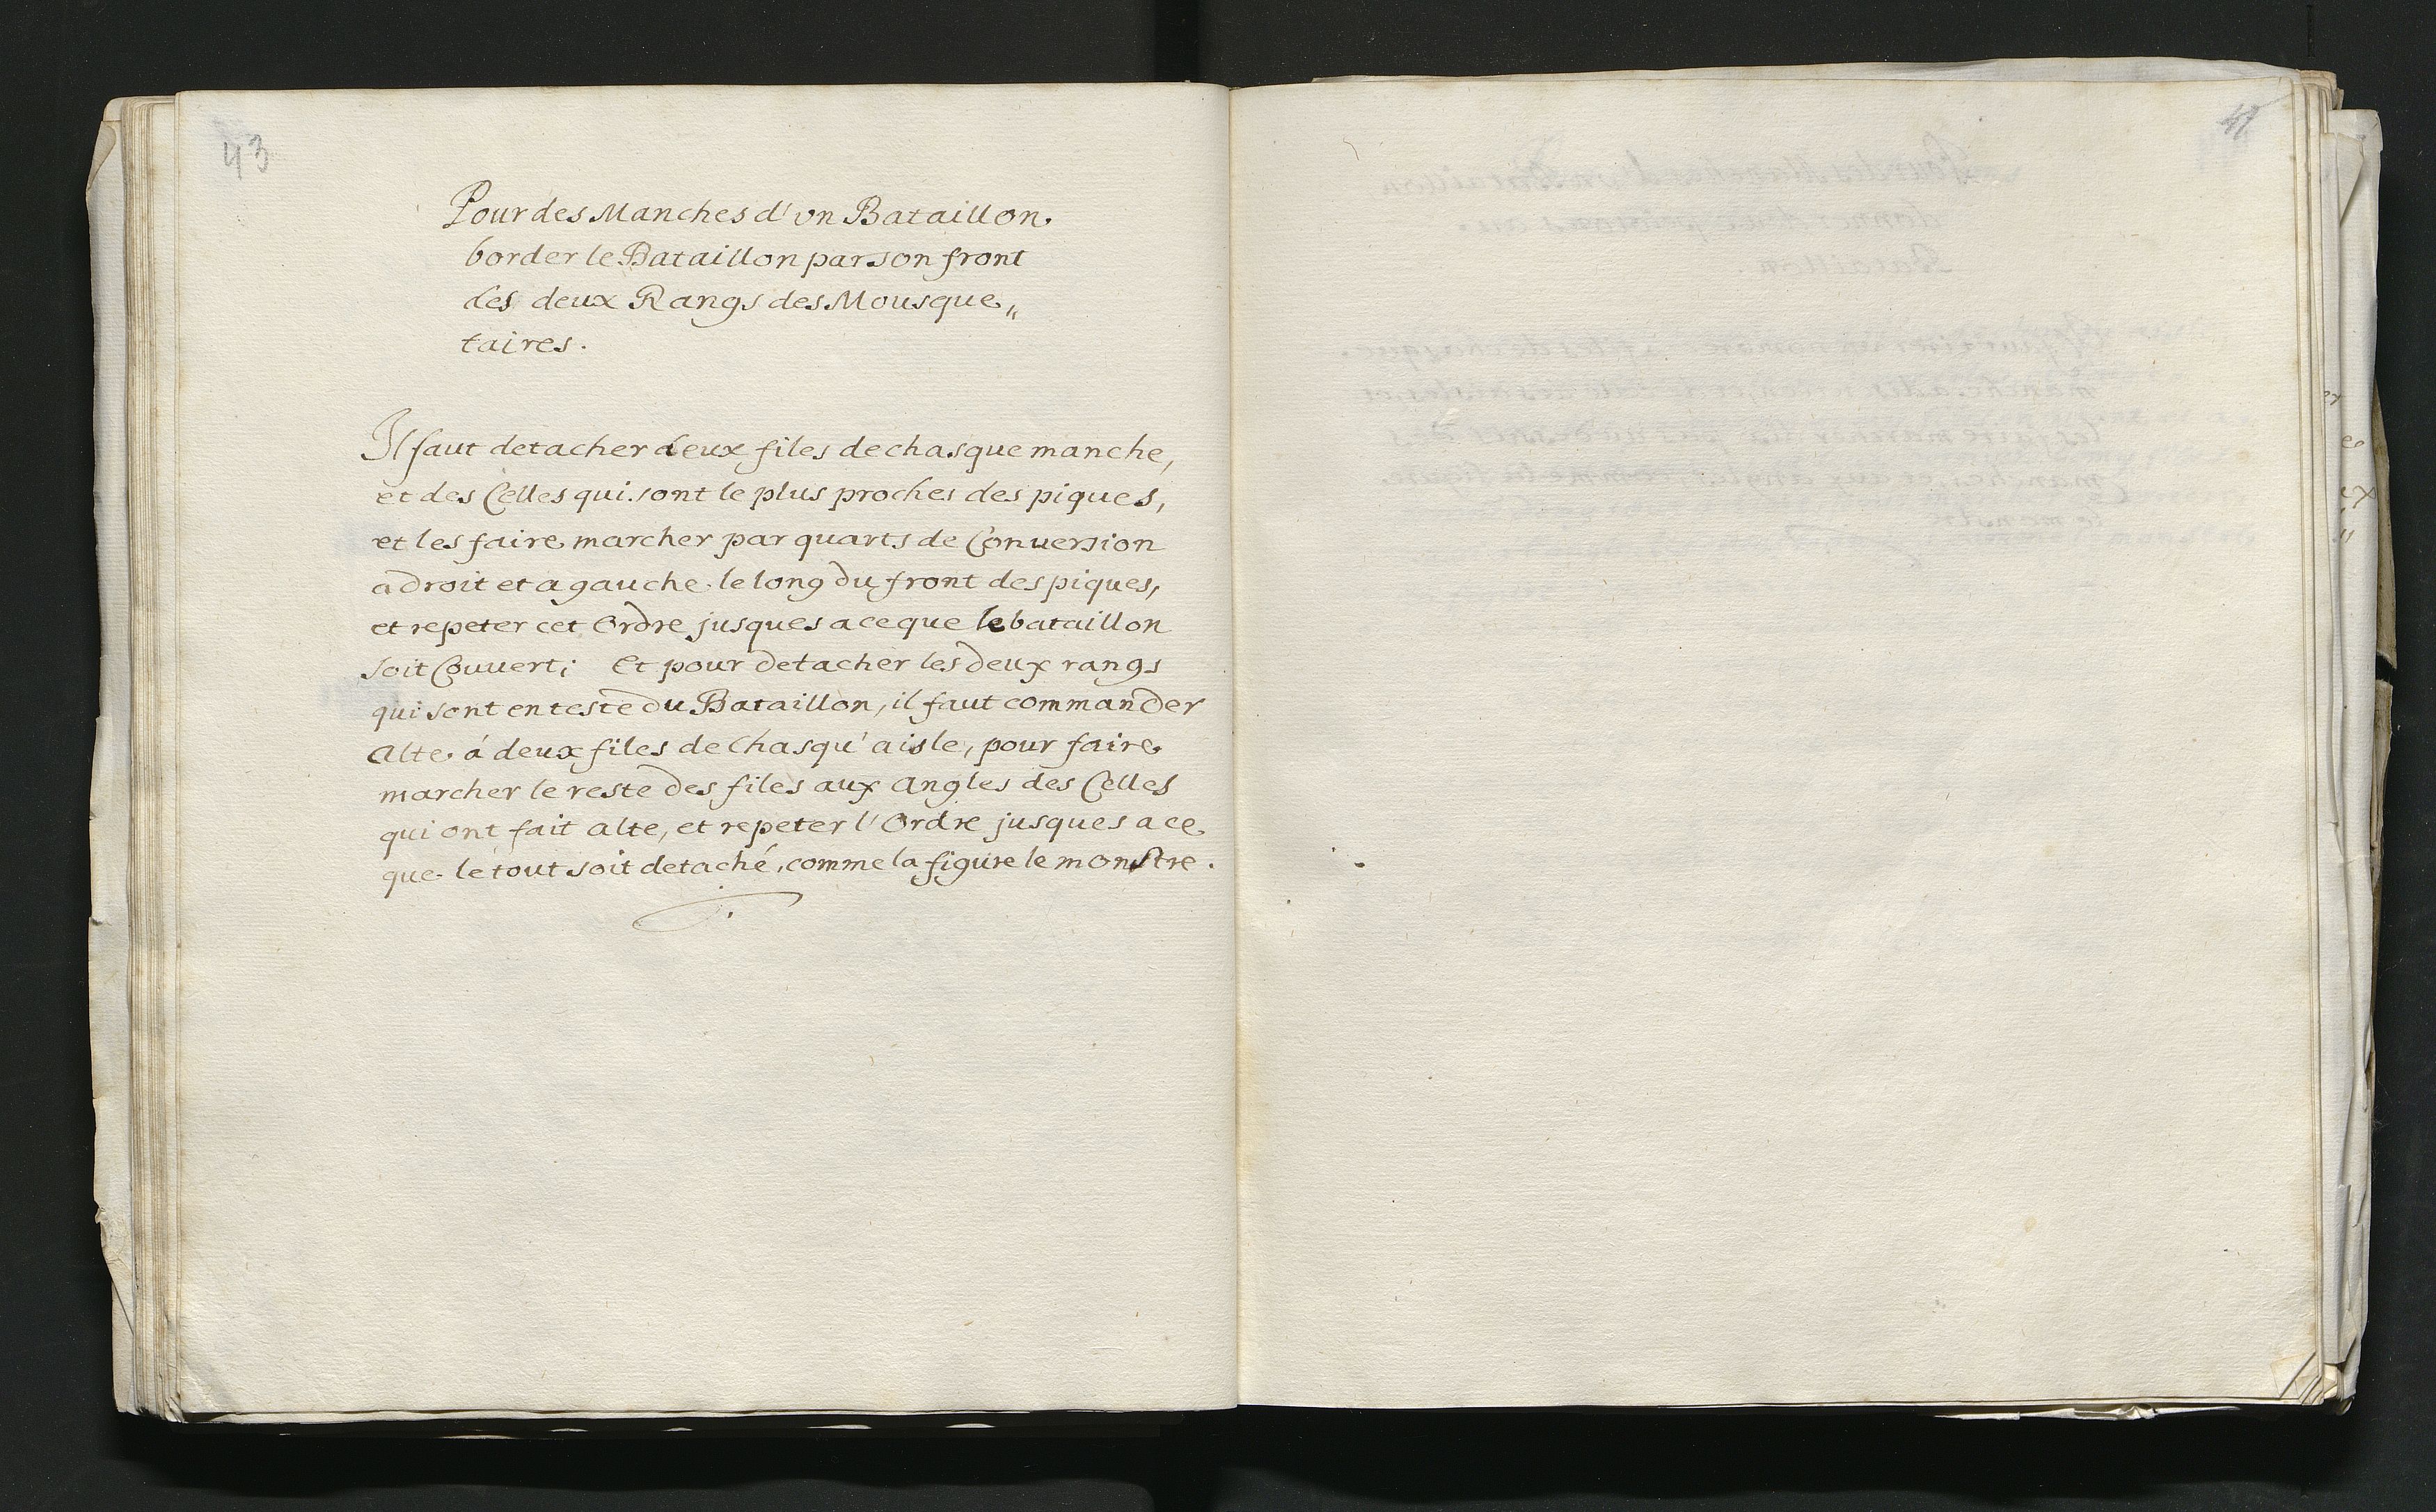 43
Pour des Manches d'vn Bataillon
border le Bataillon par son front
des deux Rangs des Mousque„
taires.
Il faut detacher deux files de chasque manche,
et des Celles qui sont le plus proches des piques,
et les faire marcher par quarts de Conuersion
a droit et a gauche le long du front des piques,
et repeter cet Ordre jusques a ce que le bataillon
soit Couuert; Et pour detacher les deux rangs
qui sont en teste du Bataillon, il faut commander
Alte á deux files de Chasqu'aisle, pour faire
marcher le reste des files aux Angles des Celles
qui ont fait alte, et repeter l'Ordre jusques a ce
que le tout soit detaché, comme la figure le monstre.